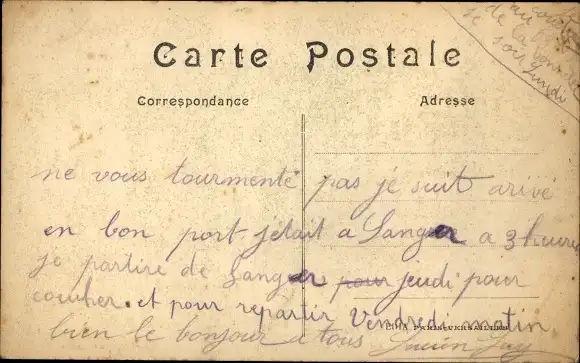 Carte Postale
Correspondance
Adresse
au
de la
ce soir
Lundi
ne vous tourmenté pas je suit arivé
en bon port j'etait a Sanger a 3 heures
je partire de Sanger pour jeudi pour
coucher. et pour repartir Vendredi matin
bien le bonjour a tous Lucien